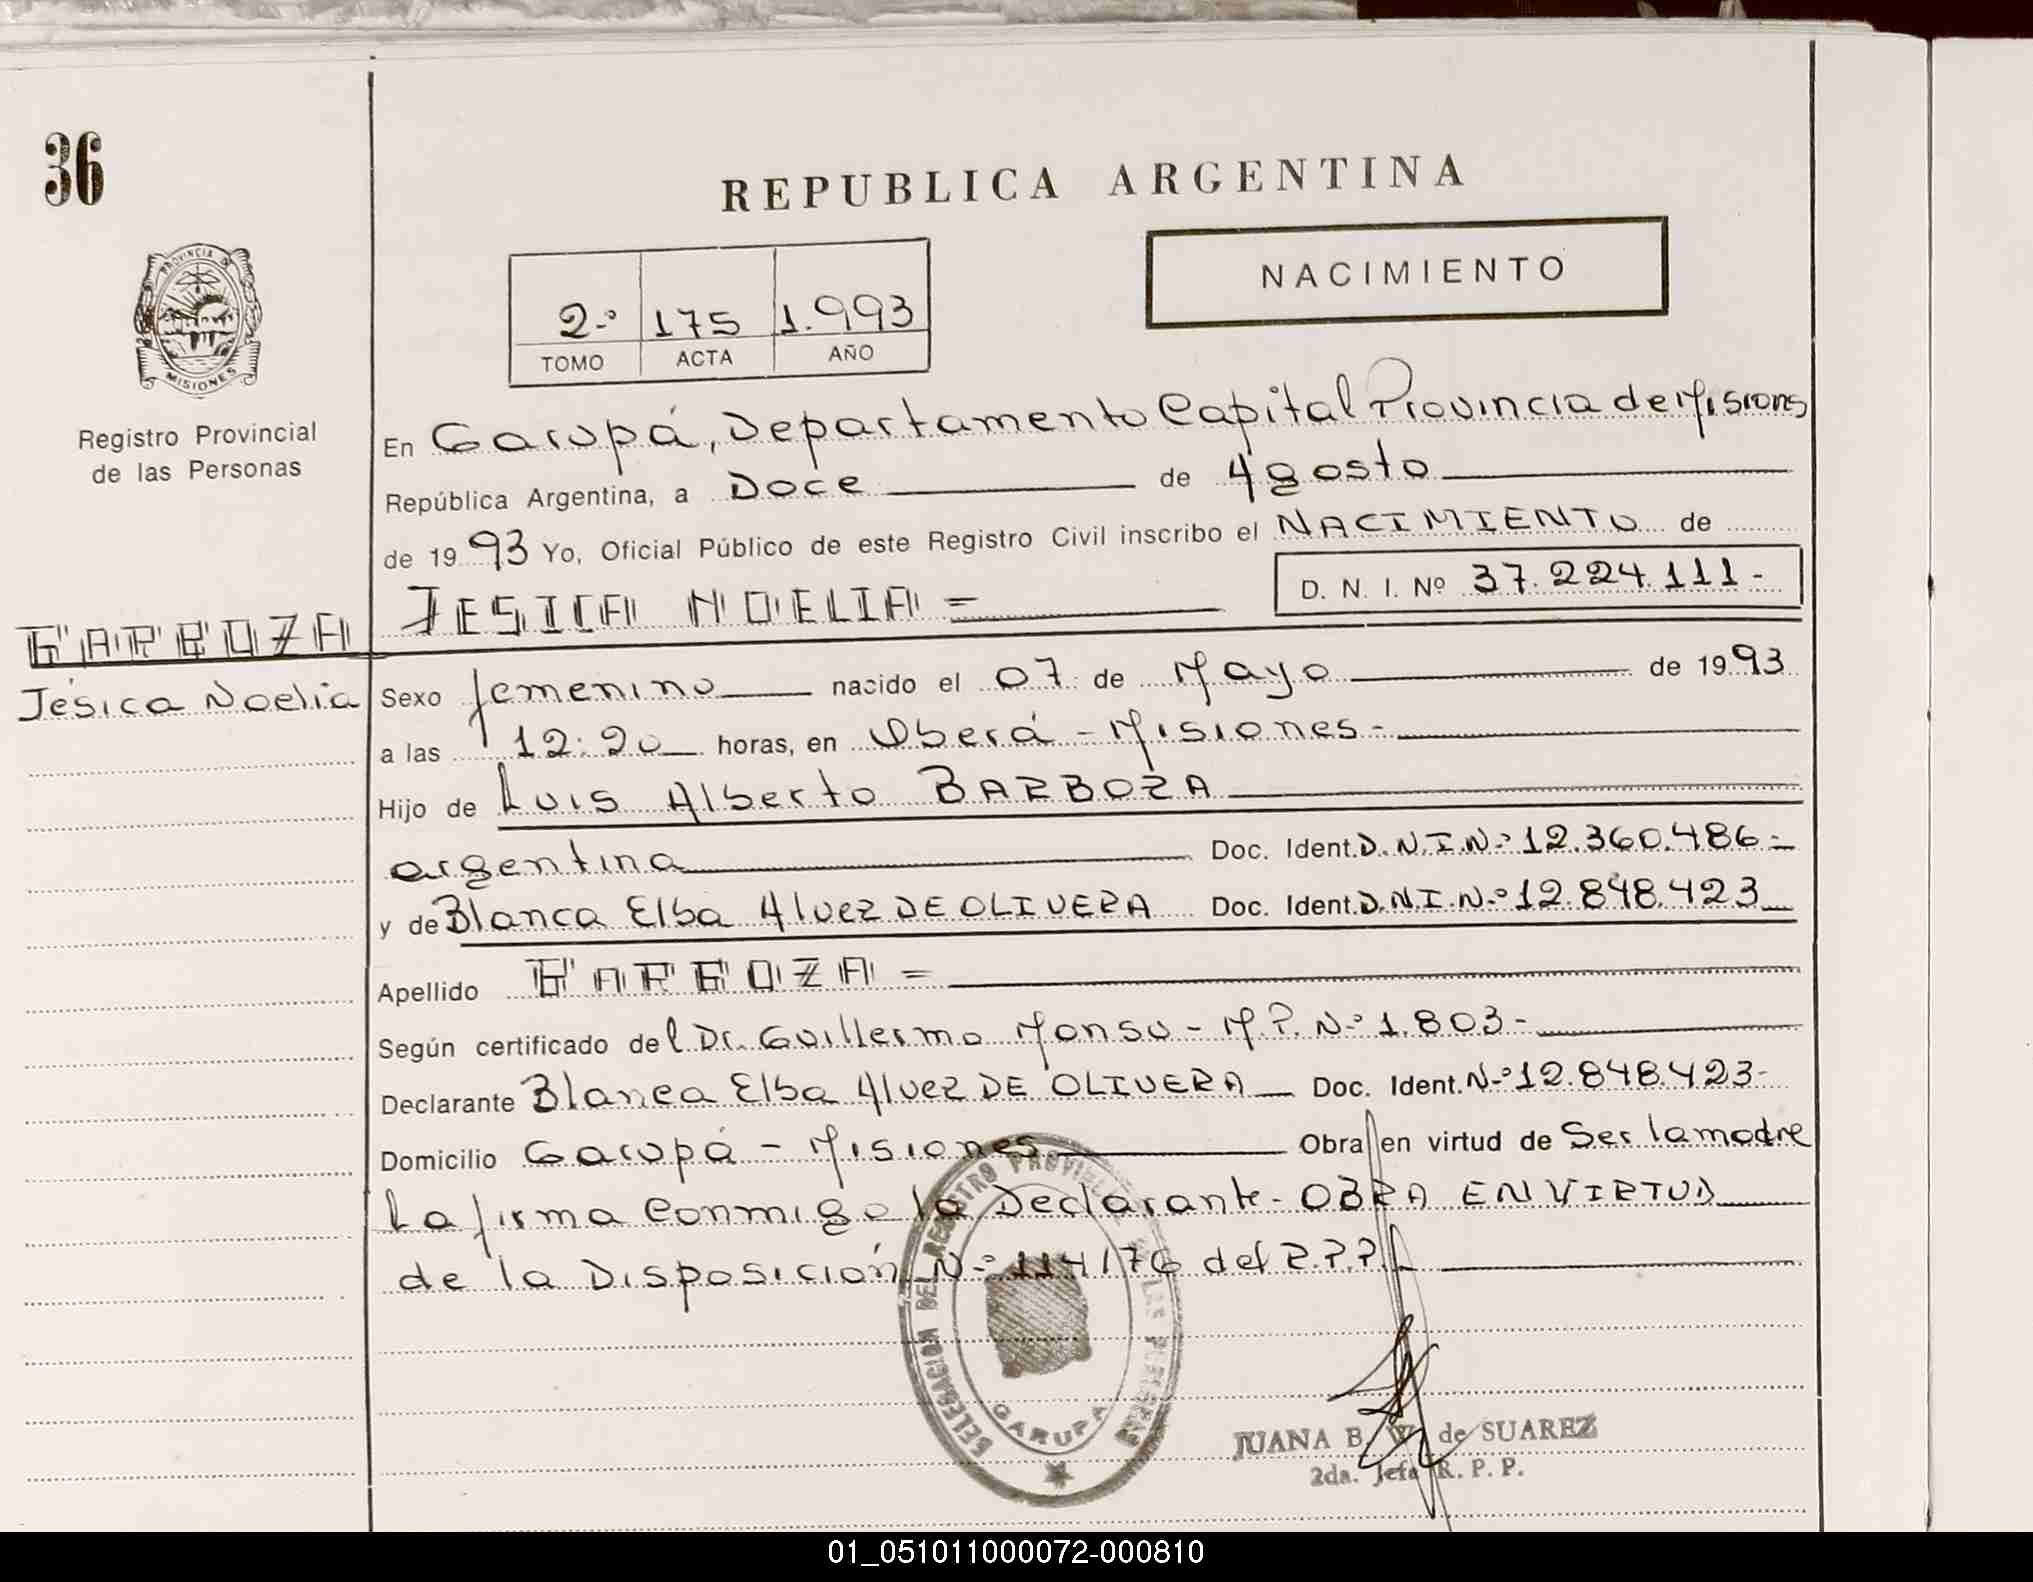 36
REPUBLICA ARGENTINA
NACIMIENTO
2.º 175 1.993
TOMO ACTA AÑO
PROVINCIA DE
MISIONES
Registro Provincial
de las Personas
En Garupá, Departamento Capital Provincia de Misiones
República Argentina, a Doce de Agosto
de 1993 Yo, Oficial Público de este Registro Civil inscribo el NACIMIENTO de
JESICA NOELIA = D. N. I. Nº 37.224.111-
BARBOZA
Jésica Noelia
Sexo femenino nacido el 07 de Mayo de 1993
a las 12:20 horas, en Oberá - Misiones -
Hijo de Luis Alberto BARBOZA
argentina Doc. Ident. D.N.I.N.º 12.360.486=
y de Blanca Elba Alvez DE OLIVERA Doc. Ident. D.N.I.N.º 12.848.423
Apellido BARBOZA =
Según certificado del Dr. Guillermo Monso - M.P. N.º 1.803-
Declarante Blanca Elba Alvez DE OLIVERA Doc. Ident. N.º 12.848.423-
Domicilio Garupá - Misiones Obra en virtud de Ser la madre
La firma Conmigo la Declarante - OBRA EN VIRTUD
de la Disposición N.º 114/76 del R.P.P.
DELEGACION DEL REGISTRO PROVINCIAL DE LAS PERSONAS
GARUPA
JUANA B. W. de SUAREZ
2da. Jefa R. P. P.
01_051011000072-000810